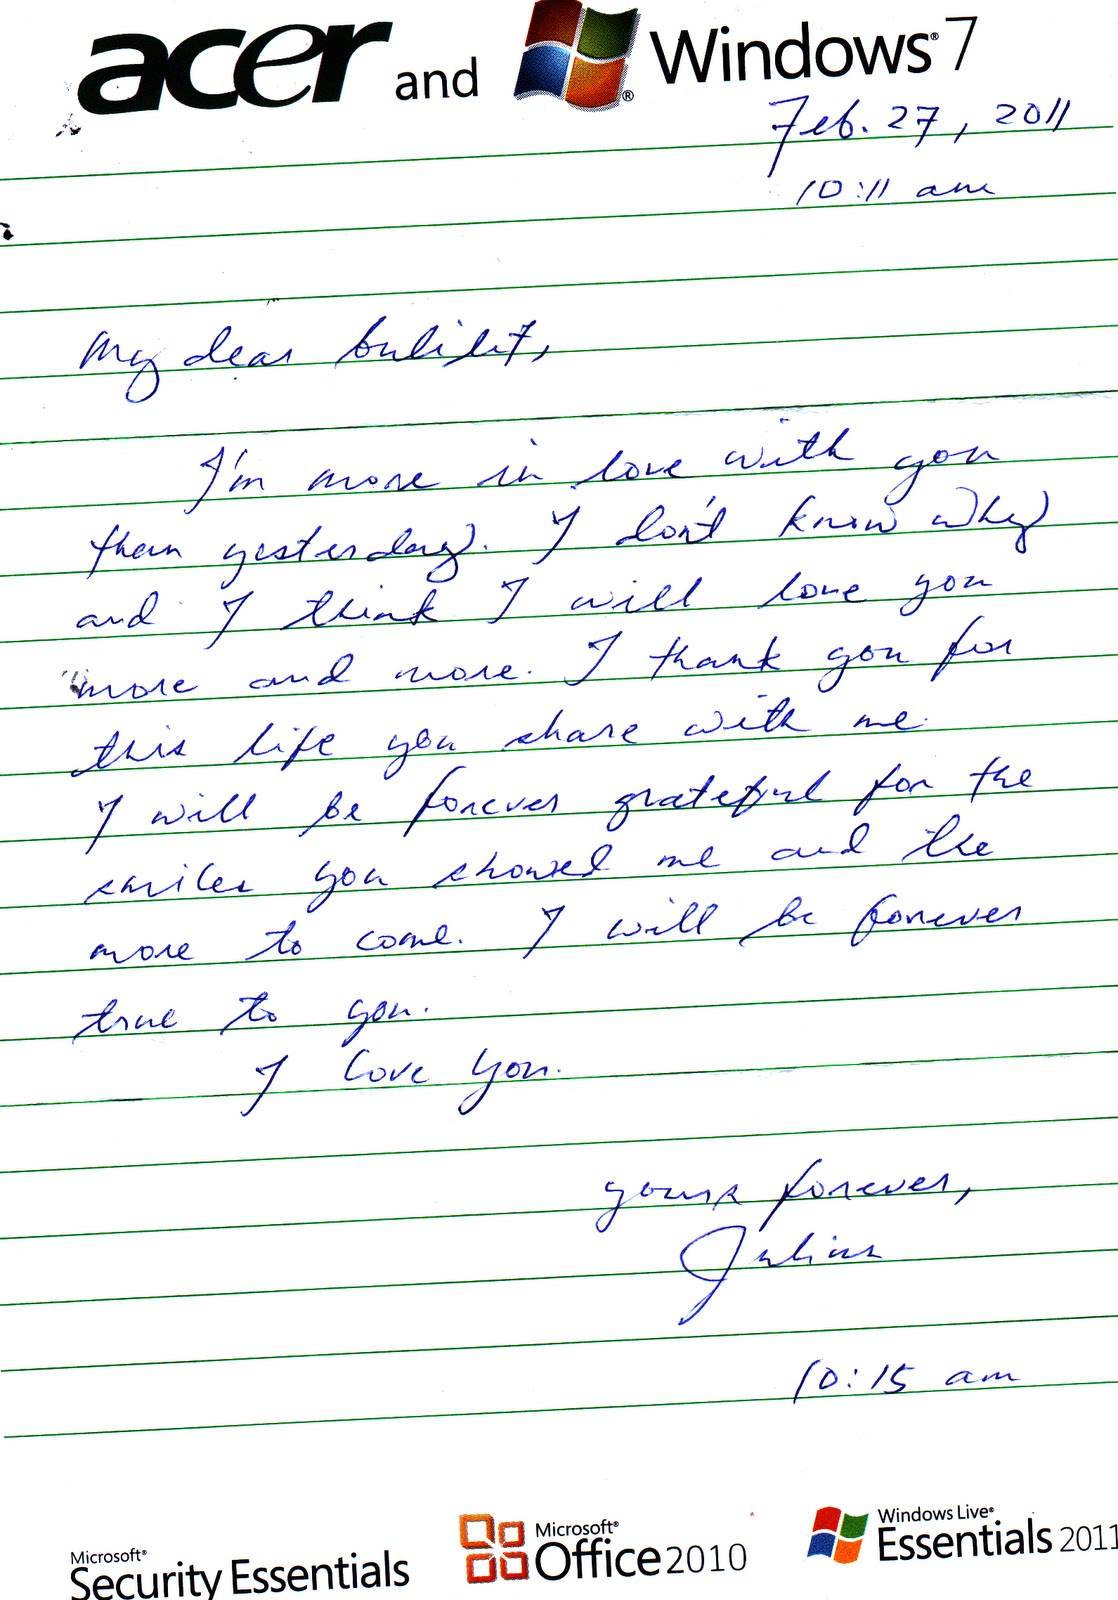 acer and Windows® 7
Feb. 27, 2011
10:11 am
My dear bulilit,
I'm more in love with you
than yesterday. I don't know why
and I think I will love you
more and more. I thank you for
this life you share with me.
I will be forever grateful for the
smiles you showed me and the
more to come. I will be forever
true to you.
I love you.
yours forever,
Julius
10:15 am
Microsoft®
Security Essentials
Microsoft®
Office 2010
Windows Live®
Essentials 2011